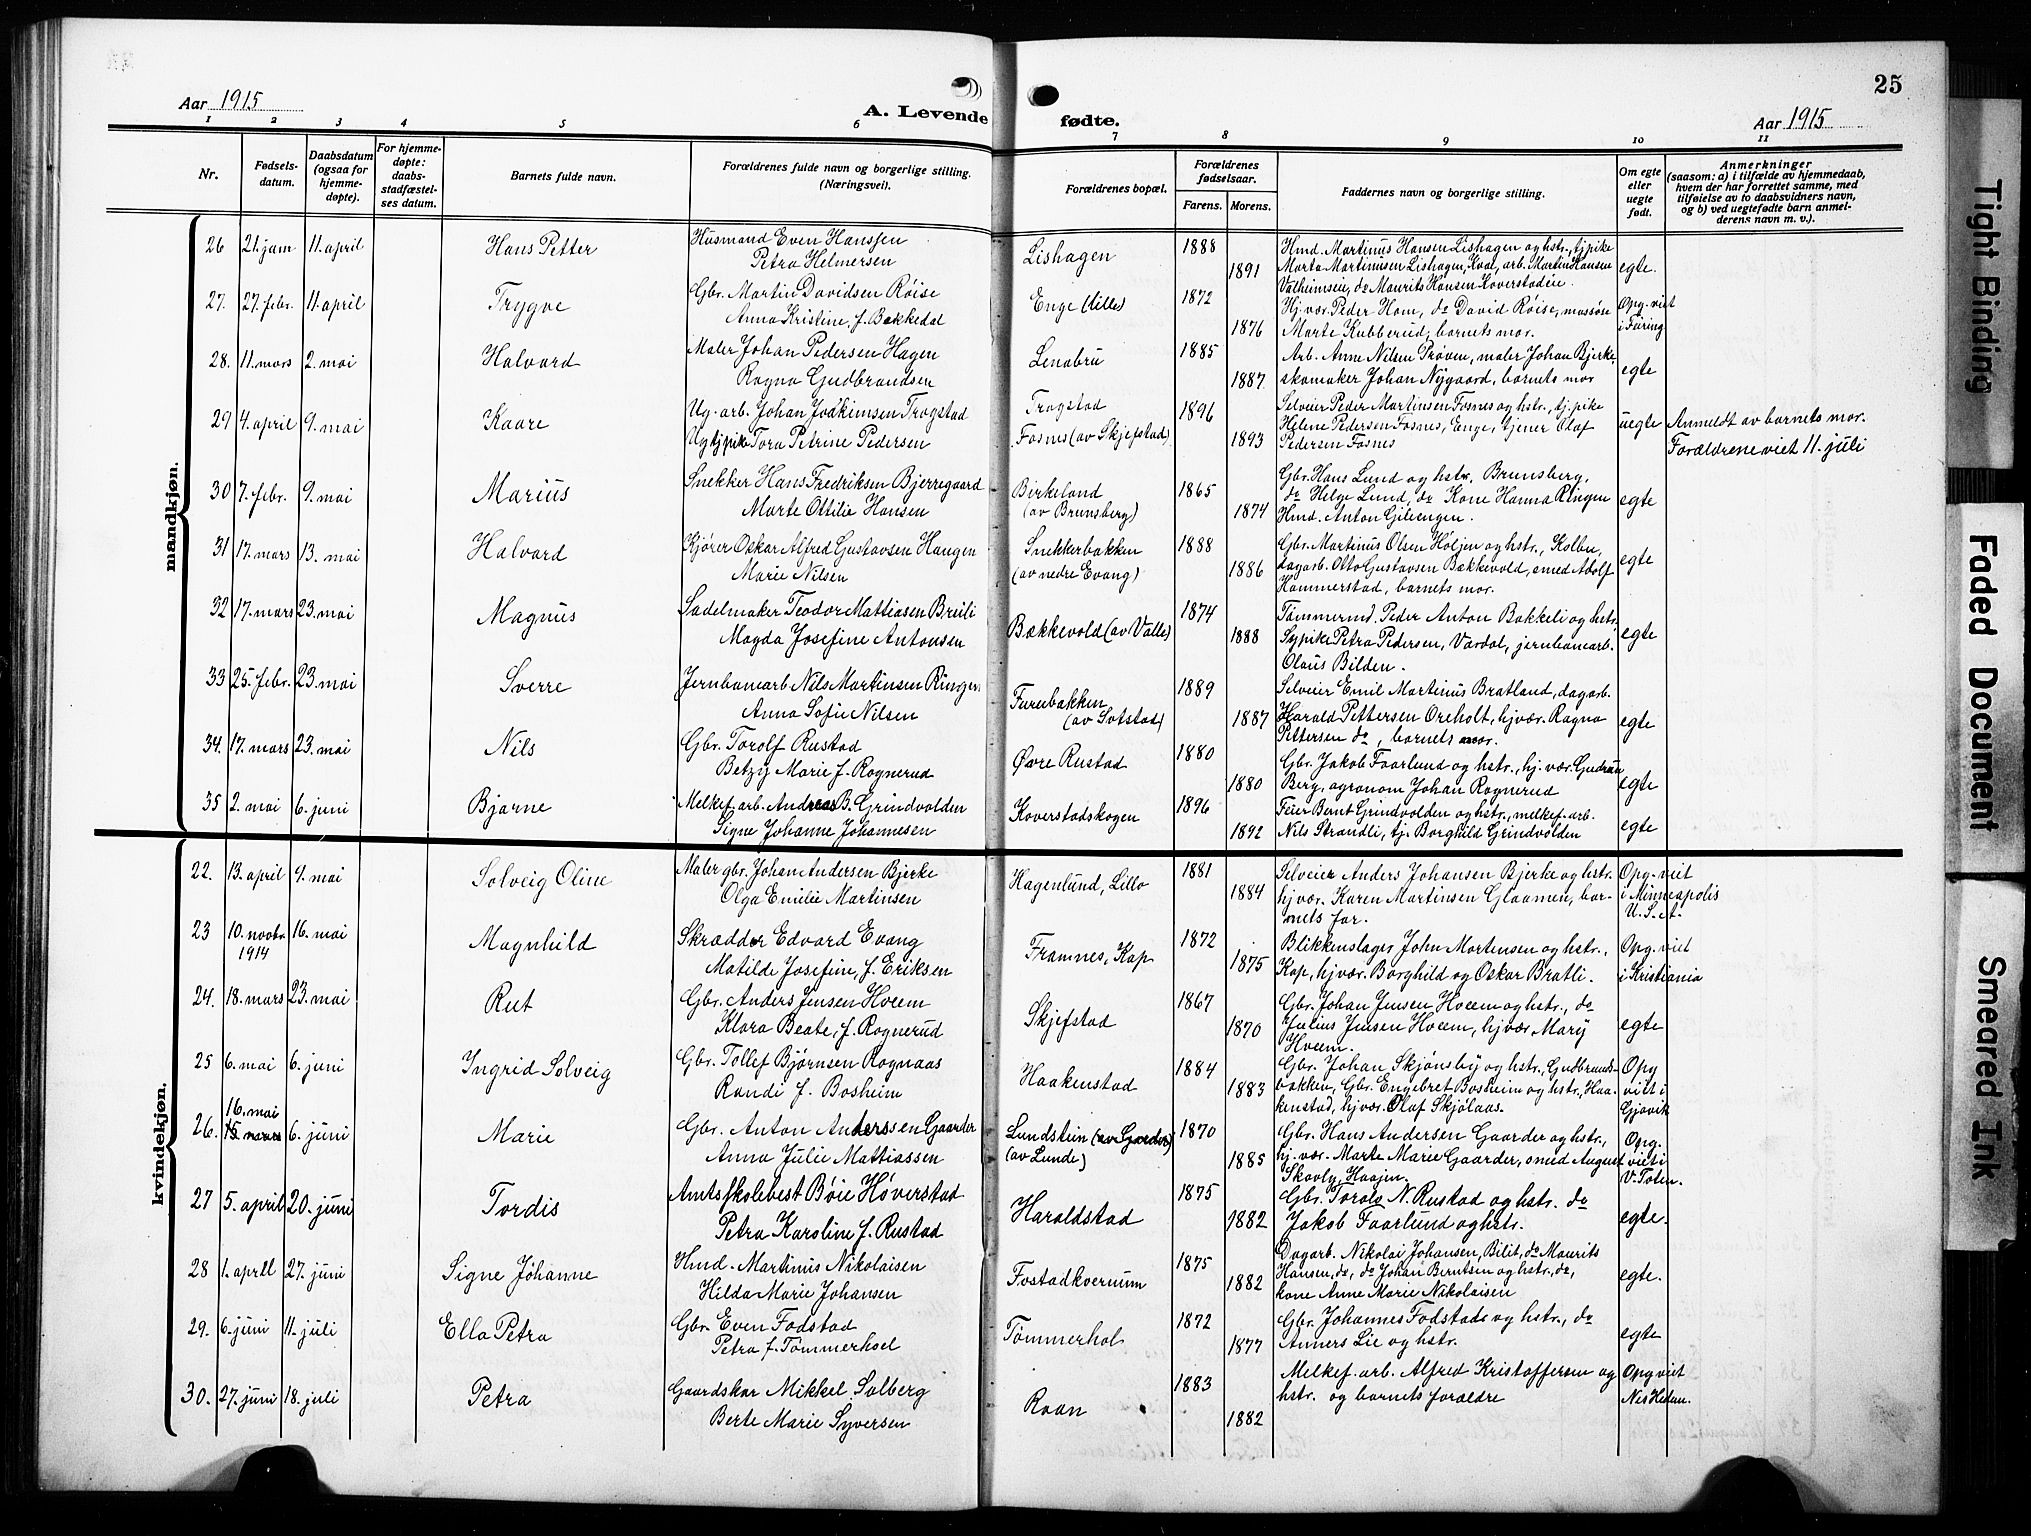 Aar 1915
A. Levende
fødte.
Aar 1915
25
1 2 3 4 5 6 7 8 9 10 11
Nr.
Fødsels-
datum.
Daabsdatum
(ogsaa for
hjemme-
døpte).
For hjemme-
døpte:
daabs-
stadfæstel-
ses datum.
Barnets fulde navn.
Forældrenes fulde navn og borgerlige stilling.
(Næringsvei).
Forældrenes bopæl.
Forældrenes
fødselsaar.
Farens. Morens.
Faddernes navn og borgerlige stilling.
Om egte
eller
uegte
født.
Anmerkninger
(saasom: a) i tilfælde av hjemmedaab,
hvem der har forrettet samme, med
tilføielse av to daabsvidners navn,
og b) ved uegtefødte barn anmel-
derens navn m. v.).
mandkjøn.
26 21. jan 11. april Hans Petter
Husmand Even Hanssen
Petra Helmersen
Lishagen 1888 1891
Hmd. Martinus Hansen Lishagen og hstr., tj.pike
Marta Martinusen Lishagen, Kval, arb. Martin Hansen
Valheimseie, do Maurits Hansen Koverstadeie.
egte.
27. 27. febr. 11. april Trygve
Gbr. Martin Davidsen Røise
Anna Kristine f. Bakkedal
Enge (lille) 1872 1876
Hj.vær. Peder Hom, do David Røise, massøse
Marte Kubberud, barnets mor.
Opg. viet
i Furing
28. 11. mars 2. mai Halvard
Maler Johan Pedersen Hagen
Ragna Gudbrandsen
Lenabru 1885 1887
Arb. Anne Nilsen Prøven, maler Johan Bjerke,
skomaker Johan Nygaard, barnets mor
egte
29 4. april 9. mai Kaare
Ug. arb. Johan Joakimsen Trogstad
Ug tjpike Tora Petrine Pedersen
Trogstad
Fosnes (av Skjefstad) 1896 1893
Selveier Peder Martinsen Fosnes og hstr., tj.pike
Helene Pedersen Fosnes, Enge, tjener Olaf
Pedersen Fosnes
uegte
Anmeldt av barnets mor.
Forældrene viet 11. juli
30 7. febr. 9. mai Marius
Snekker Hans Fredriksen Bjerregaard
Marte Ottilie Hansen
Birkeland
(av Brunsberg) 1865 1874
Gbr. Hans Lund og hstr., Brunsberg,
do Helge Lund, do Kone Hanna Ringen
Hmd. Anton Giliengen.
egte
31 17. mars 13. mai Halvard
Kjører Oskar Alfred Gustavsen Haugen
Marie Nilsen
Snekkerbakken
(av nedre Evang) 1888 1886
Gbr. Martinus Olsen Høljen og hstr., Kolbu,
dagarb. Otto Gustavsen Bækkevold, smed Adolf
Hammerstad, barnets mor.
egte
32 17. mars 23. mai Magnus
Sadelmaker Teodor Mattiasen Breili
Magda Josefine Antonsen
Bækkevold (av Valle) 1874 1888
Tømmermd. Peder Anton Bakkeli og hstr.
Sypike Petra Pedersen, Vardal, jernbanearb.
Olaus Bilden.
egte
33 25. febr. 23. mai Sverre
Jernbanearb Nils Martinsen Ringen
Anna Sofie Nilsen
Furubakken
(av Sotstad) 1889 1887
Selveier Emil Martinius Bratland, dagarb.
Harald Pettersen Oreholt, hjvær. Ragna
Pettersen do, barnets mor.
egte
34. 17. mars 23. mai Nils
Gbr. Torolf Rustad
Betzy Marie f. Rognerud
Øvre Rustad 1880 1880
Gbr. Jakob Faarlund og hstr., hj.vær. Gudrun
Berg, agronom Johan Rognerud
egte
35 2. mai 6. juni Bjarne
Melkef. arb. Andreas B. Grindvolden
Signe Johanne Johannesen
Koverstadskogen 1896 1892
Feier Bernt Grindvolden og hstr., melkef. arb.
Nils Strandli, tj. Borghild Grindvolden
egte
kvindekjøn.
22. 13. april 9. mai Solveig Oline
Maler gbr. Johan Andersen Bjerke
Olga Emilie Martinsen
Hagenlund, Lillo 1881 1884
Selveier Anders Johansen Bjerke og hstr.
hj.vær. Karen Martinsen Glaamen, bar-
nets far.
Opg. viet
i Minneapolis
U. S. A.
23 10. novbr. 16. mai Magnhild
1914
Skrædder Edvard Evang
Matilde Josefine, f. Eriksen
Framnes, Kap 1872 1875
Blikkenslager John Mortensen og hstr.,
Kap, hjvær. Borghild og Oskar Bratli.
Opg. viet
i Kristiania
24. 18. mars 23. mai Rut
Gbr. Anders Jensen Hveem
Klara Beate, f. Rognerud
Skjefstad 1867 1870
Gbr. Johan Jensen Hveem og hstr., do
Julius Jensen Hveem, hjvær. Mary
Hveem.
egte
25 6. mai 6. juni Ingrid Solveig
Gbr. Tollef Bjørnsen Rognaas
Randi f. Bosheim
Haakenstad 1884 1883
Gbr. Johan Skjønsby og hstr., Gudbrands-
bakken, Gbr. Engebret Bosheim og hstr., Haa-
kenstad, hjvær. Olaf Skjølaas.
Opg
viet i
Gjøvik
16. mai
26. 15 mars 6. juni Marie
Gbr. Anton Anderssen Gaarder
Anna Julie Mattiassen
Lundstein (av Gaarder)
(av Lunde) 1870 1885
Gbr. Hans Andersen Gaarder og hstr.,
hj.vær. Marte Marie Gaarder, smed August
Skovly, Haajen.
Opg.
viet i
V. Toten.
27 5. april 20. juni Tordis
Amtsskolebest Bøie Høverstad
Petra Karoline f. Rustad
Haraldstad 1875 1882
Gbr. Torols N. Rustad og hstr. do
Jakob Faarlund og hstr.
egte.
28 1. april 27. juni Signe Johanne
Hmd. Martinus Nikolaisen
Hilda Marie Johansen
Fostadkvernum 1875 1882
Dagarb. Nikolai Johansen, Bilit, do Maurits
Hansen, do, do Johan Berntsen og hstr., do,
kone Anne Marie Nikolaisen
egte.
29. 6. juni 11. juli Ella Petra
Gbr. Even Fodstad
Petra f. Tømmerhol
Tømmerhol 1872 1877
Gbr. Johannes Fodstad og hstr., do
Anners Lie og hstr.
egte
30. 27. juni 18. juli Petra
Gaardskar Mikkel Solberg
Berte Marie Syversen
Raan 1883 1882
Melkef. arb. Alfred Kristoffersen og
hstr. og barnets forældre
Opg viet
Nes Hedem.
Tight Binding
Faded Document
Smeared Ink